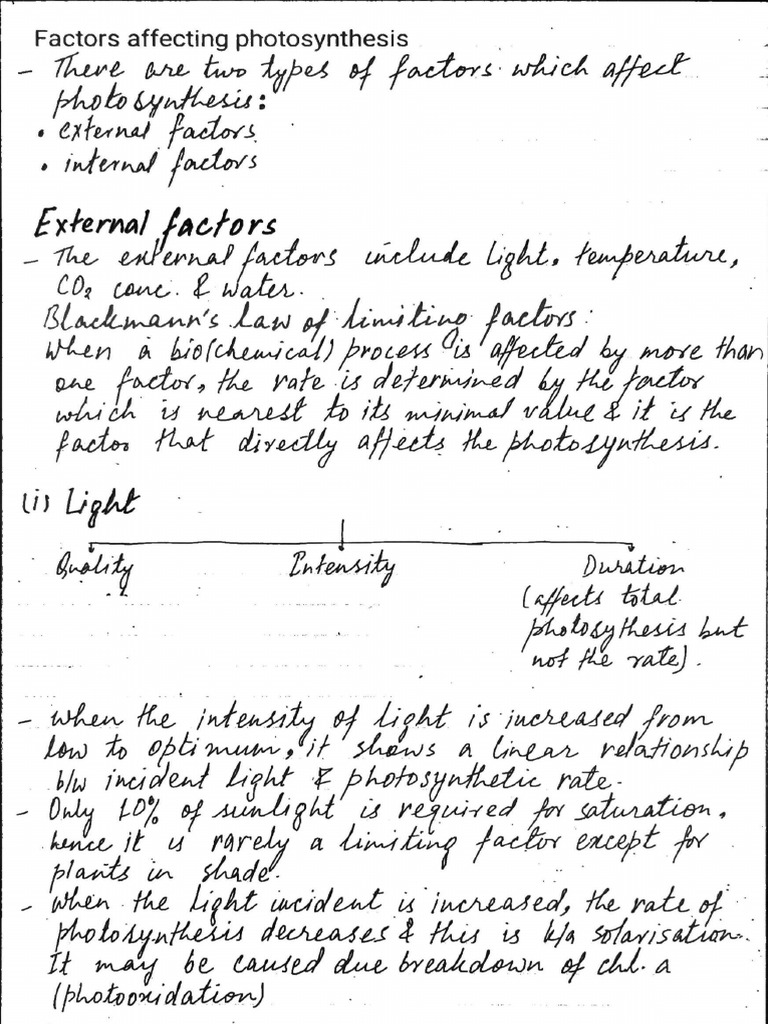 Factors affecting photosynthesis
- There are two types of factors which affect
photosynthesis:
• external factors
• internal factors
External factors
- The external factors include light, temperature,
CO2 conc. & water.
Blackmann's Law of limiting factors:
When a bio(chemical) process is affected by more than
one factor, the rate is determined by the factor
which is nearest to its minimal value & it is the
factor that directly affects the photosynthesis.
(i) Light
Quality Intensity Duration
(affects total
photosythesis but
not the rate).
- when the intensity of light is increased from
low to optimum, it shows a linear relationship
b/w incident light & photosynthetic rate.
- Only 10% of sunlight is required for saturation,
hence it is rarely a limiting factor except for
plants in shade.
- when the light incident is increased, the rate of
photosynthesis decreases & this is k/a solarisation.
It may be caused due breakdown of chl. a
(photooxidation)